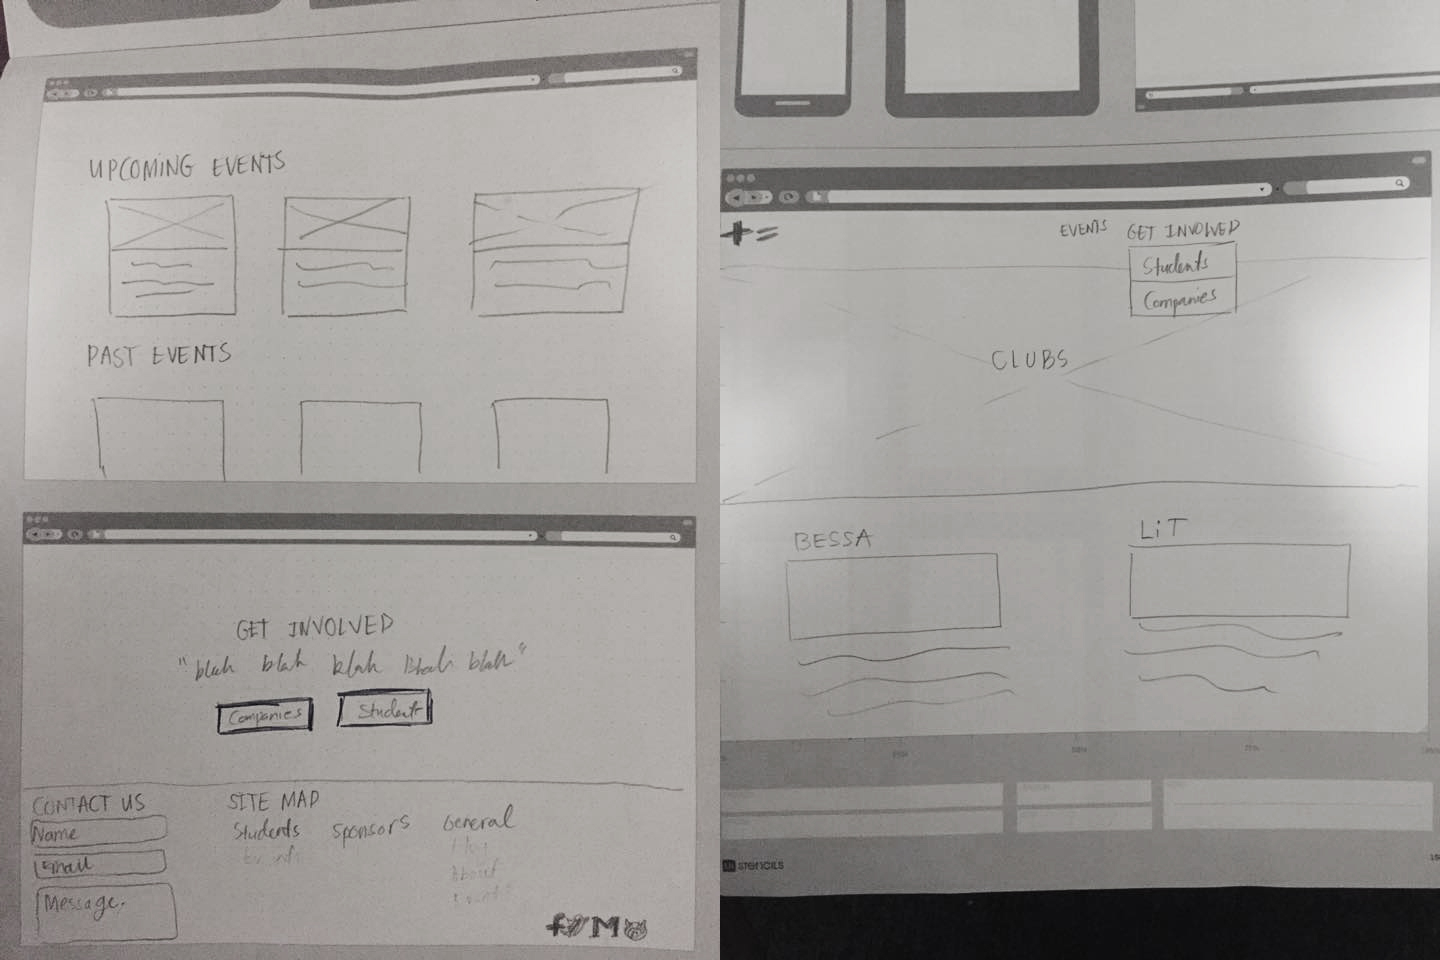 UPCOMING EVENTS
PAST EVENTS
GET INVOLVED
"blah blah blah blah blah"
Companies
Students
CONTACT US
Name
Email
Message.
SITE MAP
Students
Sponsors
General
About
EVENTS
GET INVOLVED
Students
Companies
CLUBS
BESSA
LiT
STENCILS